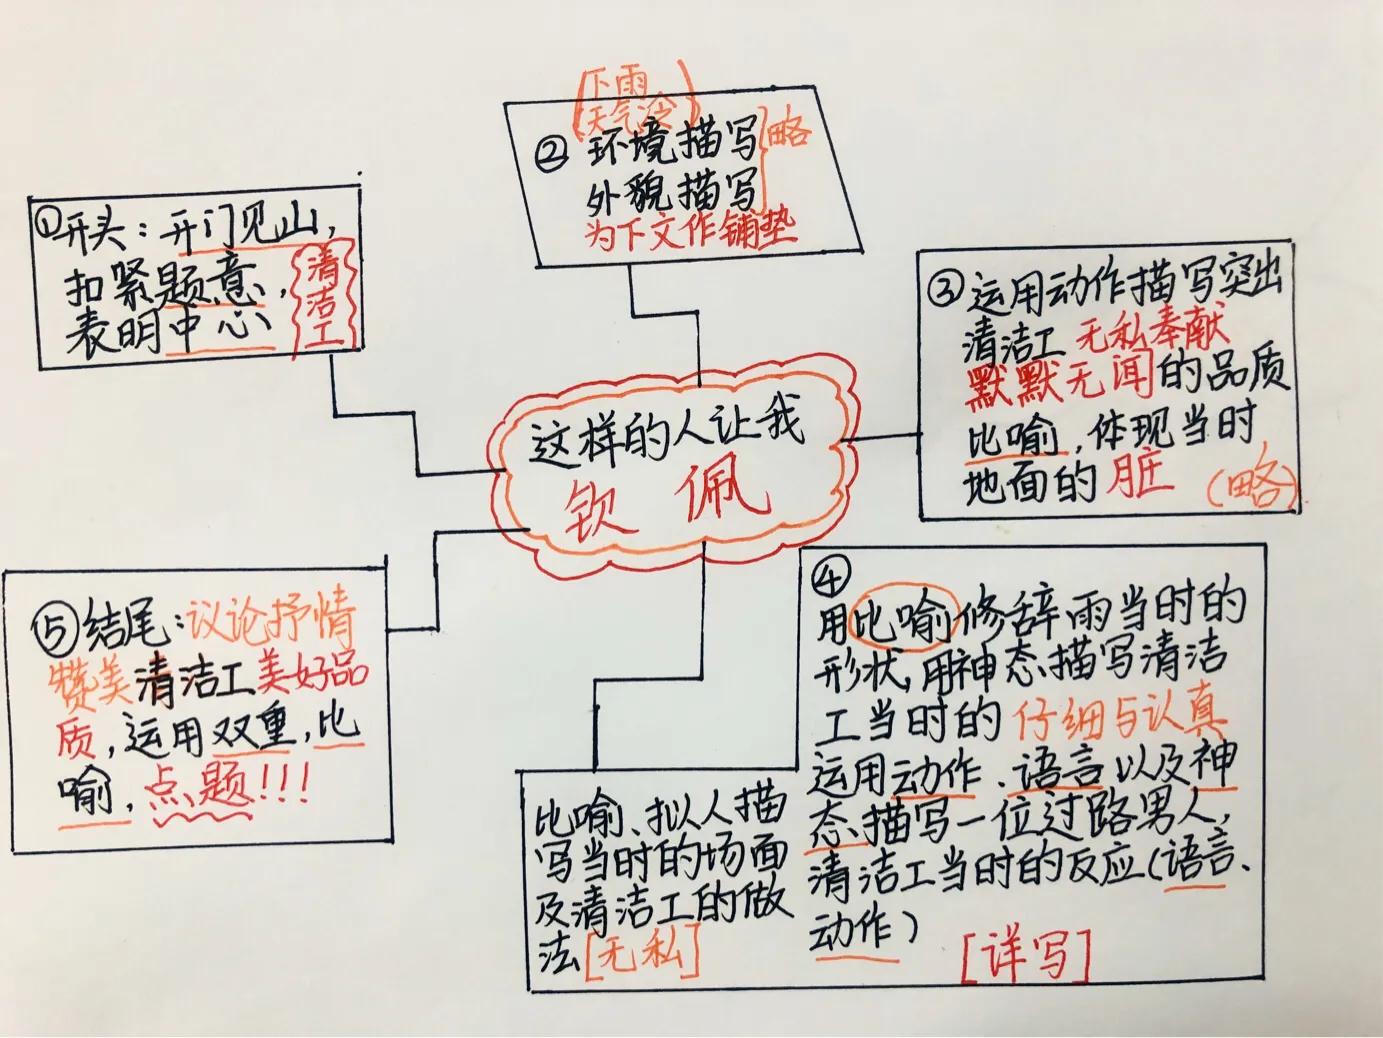 这样的人让我
钦佩
①开头：开门见山，
扣紧题意，
表明中心
清洁工
[下雨
天气冷]
②环境描写
外貌描写
略
为下文作铺垫
③运用动作描写突出
清洁工无私奉献
默默无闻的品质
比喻，体现当时
地面的脏（略）
④
用比喻修辞雨当时的
形状，用神态描写清洁
工当时的仔细与认真
运用动作、语言以及神
态描写一位过路男人，
清洁工当时的反应（语言、
动作）
[详写]
比喻、拟人描
写当时的场面
及清洁工的做
法[无私]
⑤结尾：议论抒情
赞美清洁工美好品
质，运用双重，比
喻，点题！！！